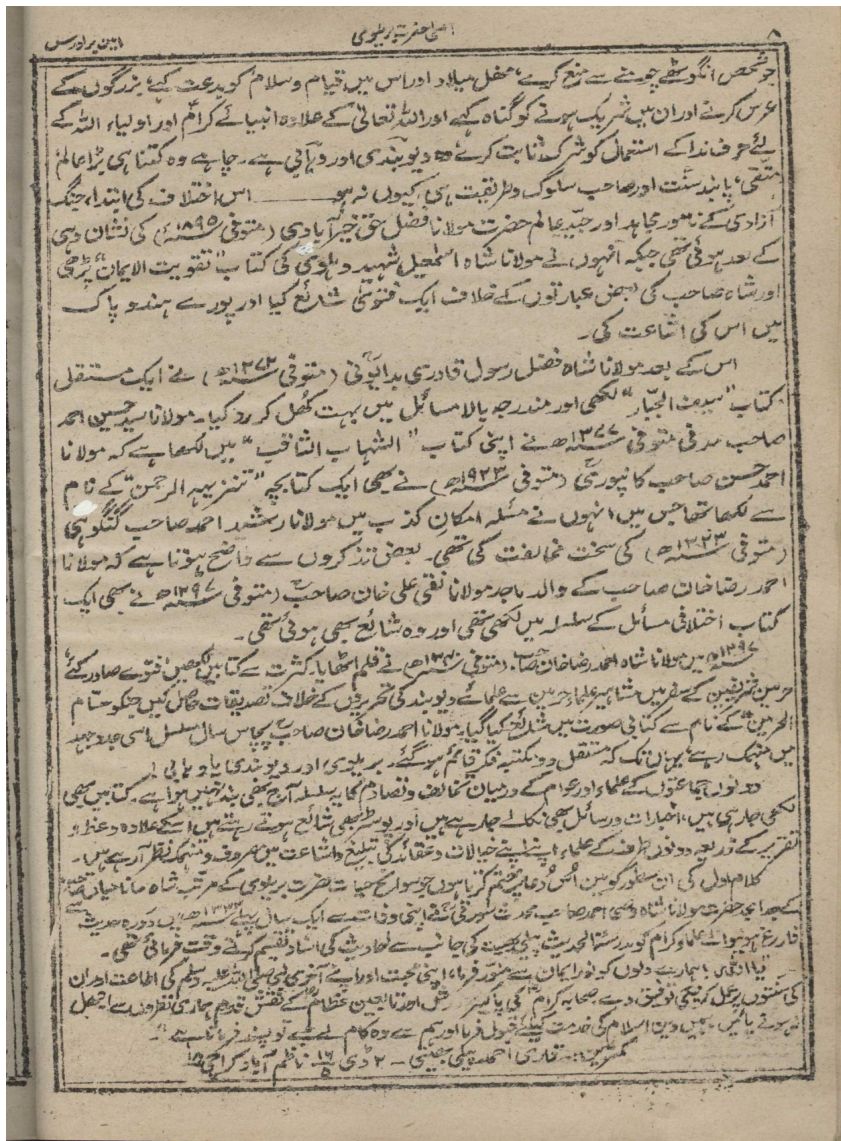 ۸
اعلیٰحضرت بریلوی
امین برادرس
جو شخص انگوٹھے چومنے سے منع کرے، محفل میلاد اور اس میں قیام وسلام کو بدعت کہے، بزرگوں کے
عرس کرنے اور ان میں شریک ہونے کو گناہ کہے اور اللہ تعالیٰ کے علاوہ انبیائے کرامؑ اور اولیاء اللہ کے
لئے حرف ندا کے استعمال کو شرک ثابت کرے وہ دیوبندی اور وہابی ہے۔ چاہے وہ کتنا ہی بڑا عالم
متقی، پابند سنت اور صاحب سلوک وطریقت ہی کیوں نہ ہو ــــــــ اس اختلاف کی ابتداء جنگ
آزادی کے نامور مجاہد اور جیّد عالم حضرت مولانا فضل حق خیرآبادی (متوفی ۱۸۹۵ء) کی نشان دہی
کے بعد ہوئی تھی جبکہ انہوں نے مولانا شاہ اسمٰعیل شہید دہلوی کی کتاب "تقویت الایمان" پڑھی
اور شاہ صاحب کی بعض عبارتوں کے خلاف ایک فتویٰ شائع کیا اور پورے ہند و پاک
میں اس کی اشاعت کی۔
اس کے بعد مولانا شاہ فضل رسول قادری بدایونی (متوفی ۱۲۷۲ھ) نے ایک مستقل
کتاب "سیف الجبار" لکھی اور مندرجہ بالا مسائل میں بہت کھل کر رد کیا۔ مولانا سید حسین احمد
صاحب مدنی متوفی ۱۳۷۷ھ نے اپنی کتاب "الشہاب الثاقب" میں لکھا ہے کہ مولانا
احمد حسن صاحب کانپوریؒ (متوفی ۱۹۲۳ھ) نے بھی ایک کتابچہ "تنزیہہ الرحمن" کے نام
سے لکھا تھا جس میں انہوں نے مسئلہ امکان کذب میں مولانا رشید احمد صاحب گنگوہی
(متوفی ۱۳۲۳ھ) کی سخت مخالفت کی تھی۔ بعض تذکروں سے واضح ہوتا ہے کہ مولانا
احمد رضا خان صاحب کے والد ماجد مولانا نقی علی خان صاحبؒ (متوفی ۱۲۹۷ھ) نے بھی ایک
کتاب اختلافی مسائل کے سلسلہ میں لکھی تھی اور وہ شائع بھی ہوئی تھی۔
۱۲۹۷ھ میں مولانا شاہ احمد رضا خان صاحب (متوفی ۱۳۴۰ھ) نے قلم اٹھایا۔ کثرت سے کتابیں لکھیں، فتوے صادر کئے،
حرمین شریفین کے سفر میں مشاہیر علماء حرمین سے علمائے دیوبند کی تحریروں کے خلاف تصدیقات حاصل کیں جنکو حسام
الحرمین کے نام سے کتابی صورت میں شائع کیا گیا۔ مولانا احمد رضا خان صاحبؒ پچاس سال مسلسل اسی جدوجہد
میں منہمک رہے یہاں تک کہ مستقل دو مکتبہ فکر قائم ہو گئے۔ بریلوی اور دیوبندی یا وہابی!
دونوں جماعتوں کے علماء اور عوام کے درمیان تخالف و تصادم کا یہ سلسلہ آج بھی بند نہیں ہوا ہے۔ کتابیں بھی
لکھی جا رہی ہیں، اخبارات و رسائل بھی نکالے جا رہے ہیں اور پوسٹر بھی شائع ہوتے رہتے ہیں اسکے علاوہ وعظ و
تقریر کے ذریعہ دونوں طرف کے علماء اپنے اپنے خیالات و عقائد کی تبلیغ و اشاعت میں مصروف و منہمک نظر آ رہے ہیں۔
کلام اول کی ان سطور کو میں اُس دعا پر ختم کرتا ہوں جو سوانح حیات حضرت بریلوی کے مرتب شاہ مانا میاں صاحب
کے جد امجد حضرت مولانا شاہ وصی احمد صاحب محدث سورتی نے اپنی وفات سے ایک سال پہلے ۱۳۳۳ھ میں دورہ حدیث سے
فارغ ہونیوالے علماء کرام کو مدرسۃ الحدیث پیلی بھیت کی جانب سے احادیث کی اسناد تقسیم کرتے وقت فرمائی تھی۔
"یا اللہ! ہمارے دلوں کو نور ایمان سے منور فرما، اپنی محبت اور اپنے آخری نبی صلی اللہ علیہ وسلم کی اطاعت اور ان
کی سنتوں پر عمل کرنیکی توفیق دے۔ صحابہ کرام کی پاکیزہ اور تابعین عظام کے نقش قدم ہماری نظروں سے اوجھل
نہ ہونے پائیں، ہمیں دین اسلام کی خدمت کیلئے قبول فرما اور ہم سے وہ کام لے جسے تو پسند فرماتا ہے۔"
کمترین:۔ قاری احمد پیلی بھیتی ۔ ۲ ڈی ۱۶/۵ ناظم آباد کراچی ۱۸